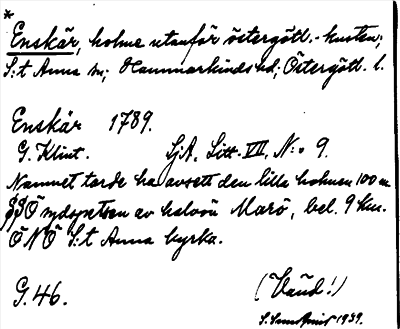 *
Enskär, holme utanför östergötl.-kusten;
S:t Anna sn; Hammarkinds hd; Östergötl. l.
Enskär 1789.
G. Klint. SjA, Litt. VII, N:o 9.
Namnet torde ha avsett den lilla holmen 100 m
SSÖ sydspetsen av halvön Marö, bel. 9 km.
ÖNÖ S:t Anna kyrka.
G. 46.
(Vänd!)
1939.